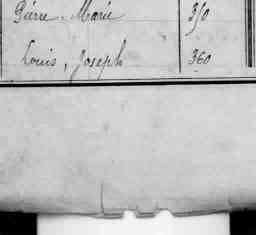 Pierre-Marie 350
Louis, Joseph 360